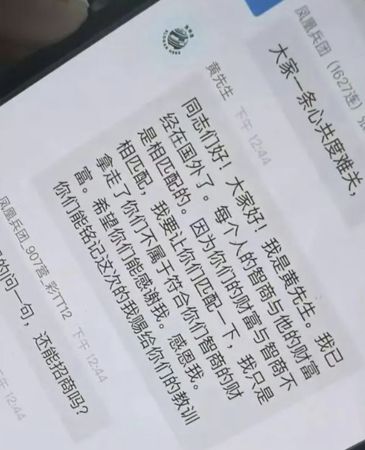 凤凰兵团（1627连）
大家一条心共度难关，
黄先生 下午 12:44
同志们好！大家好！我是黄先生。我已
经在国外了。每个人的智商与他的财富
是相匹配的。因为你们的财富与智商不
相匹配，我要让你们匹配一下，我只是
拿走了你们不属于符合你们智商的财
富。希望你们能感谢我。感恩我。
你们能铭记这次的我赐给你们的教训
凤凰兵团_907营_彩T12 下午 12:44
的问一句，还能招商吗？
下午 12:44